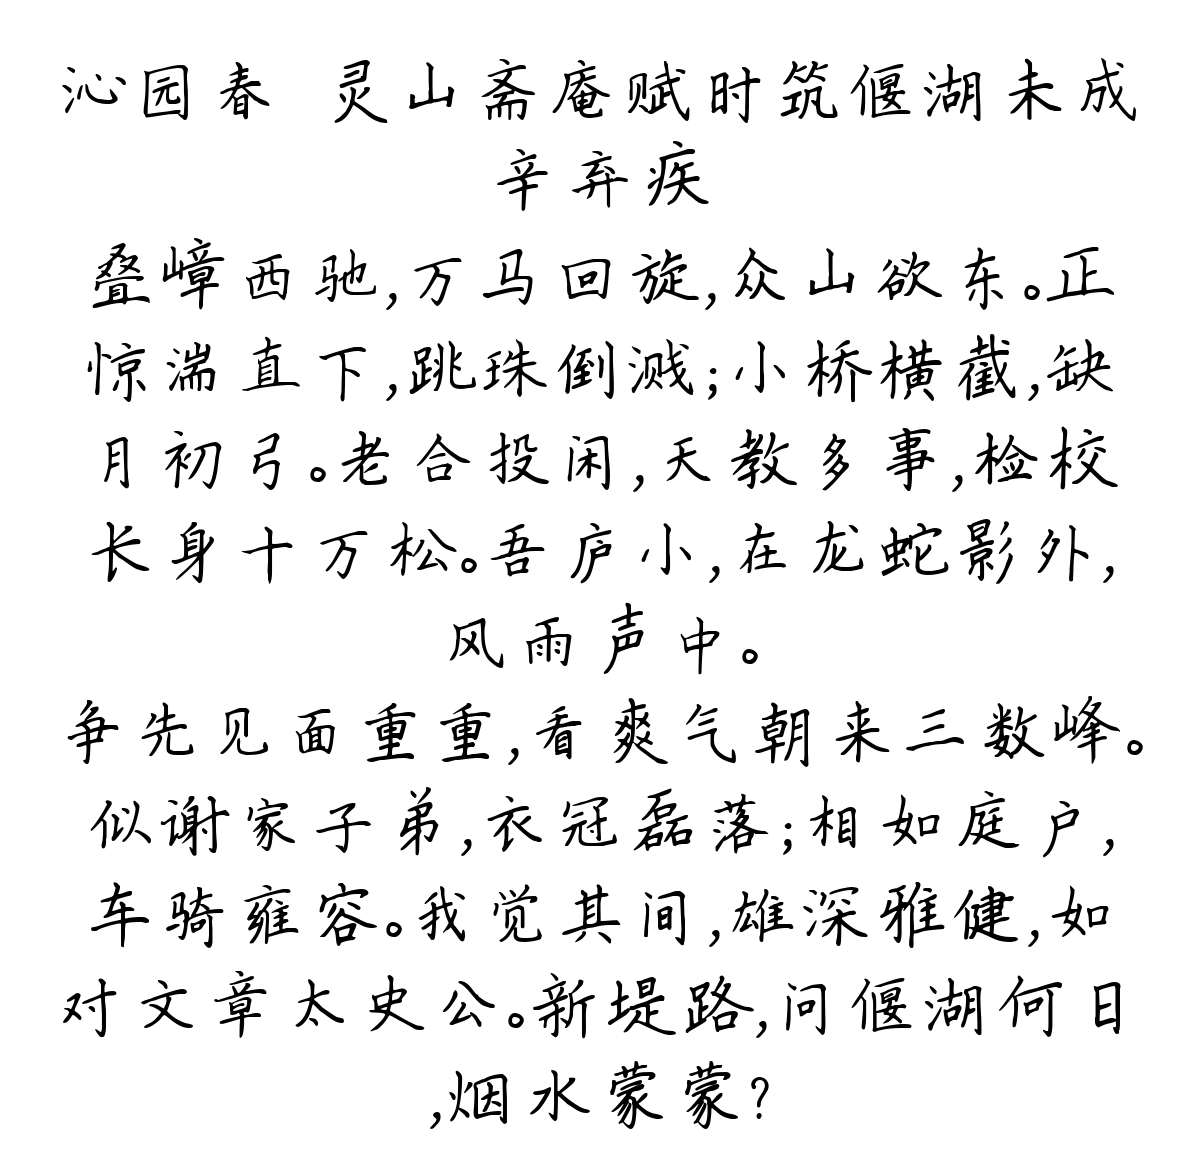 沁园春 灵山斋庵赋时筑偃湖未成
辛弃疾
叠嶂西驰,万马回旋,众山欲东。正
惊湍直下,跳珠倒溅;小桥横截,缺
月初弓。老合投闲,天教多事,检校
长身十万松。吾庐小,在龙蛇影外,
风雨声中。
争先见面重重,看爽气朝来三数峰。
似谢家子弟,衣冠磊落;相如庭户,
车骑雍容。我觉其间,雄深雅健,如
对文章太史公。新堤路,问偃湖何日
,烟水蒙蒙?